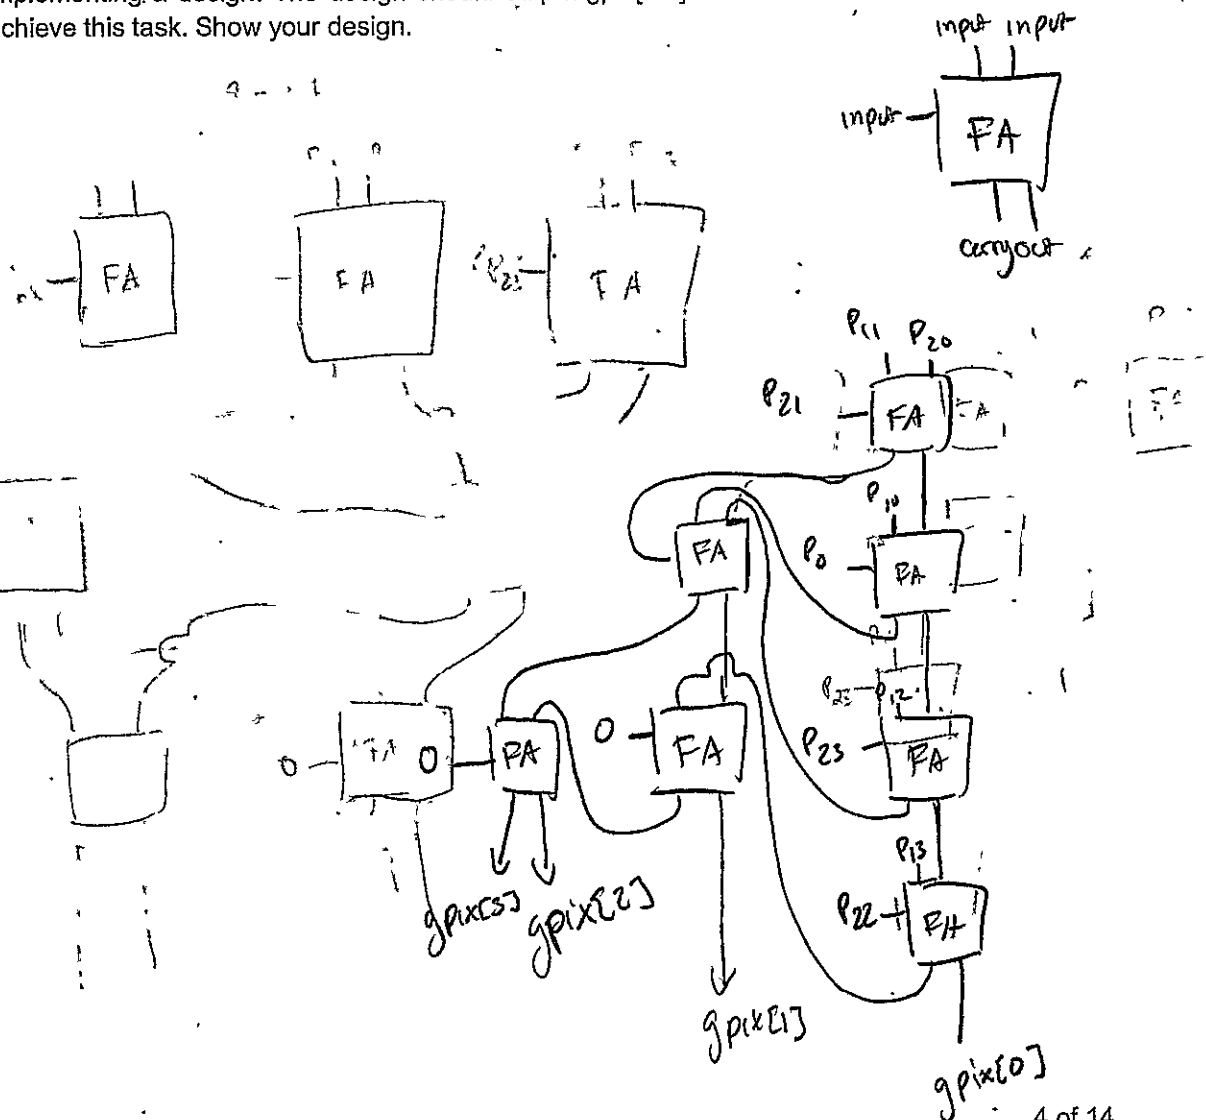 chieve this task. Show your design.
input input
input
FA
carryout
FA
FA
FA
P11 P20
P21
FA
FA
P10
P0
FA
FA
P12
P23
FA
0
FA
0
FA
0
FA
P13
P22
FA
gpix[3] gpix[2]
gpix[1]
gpix[0]
4 of 14